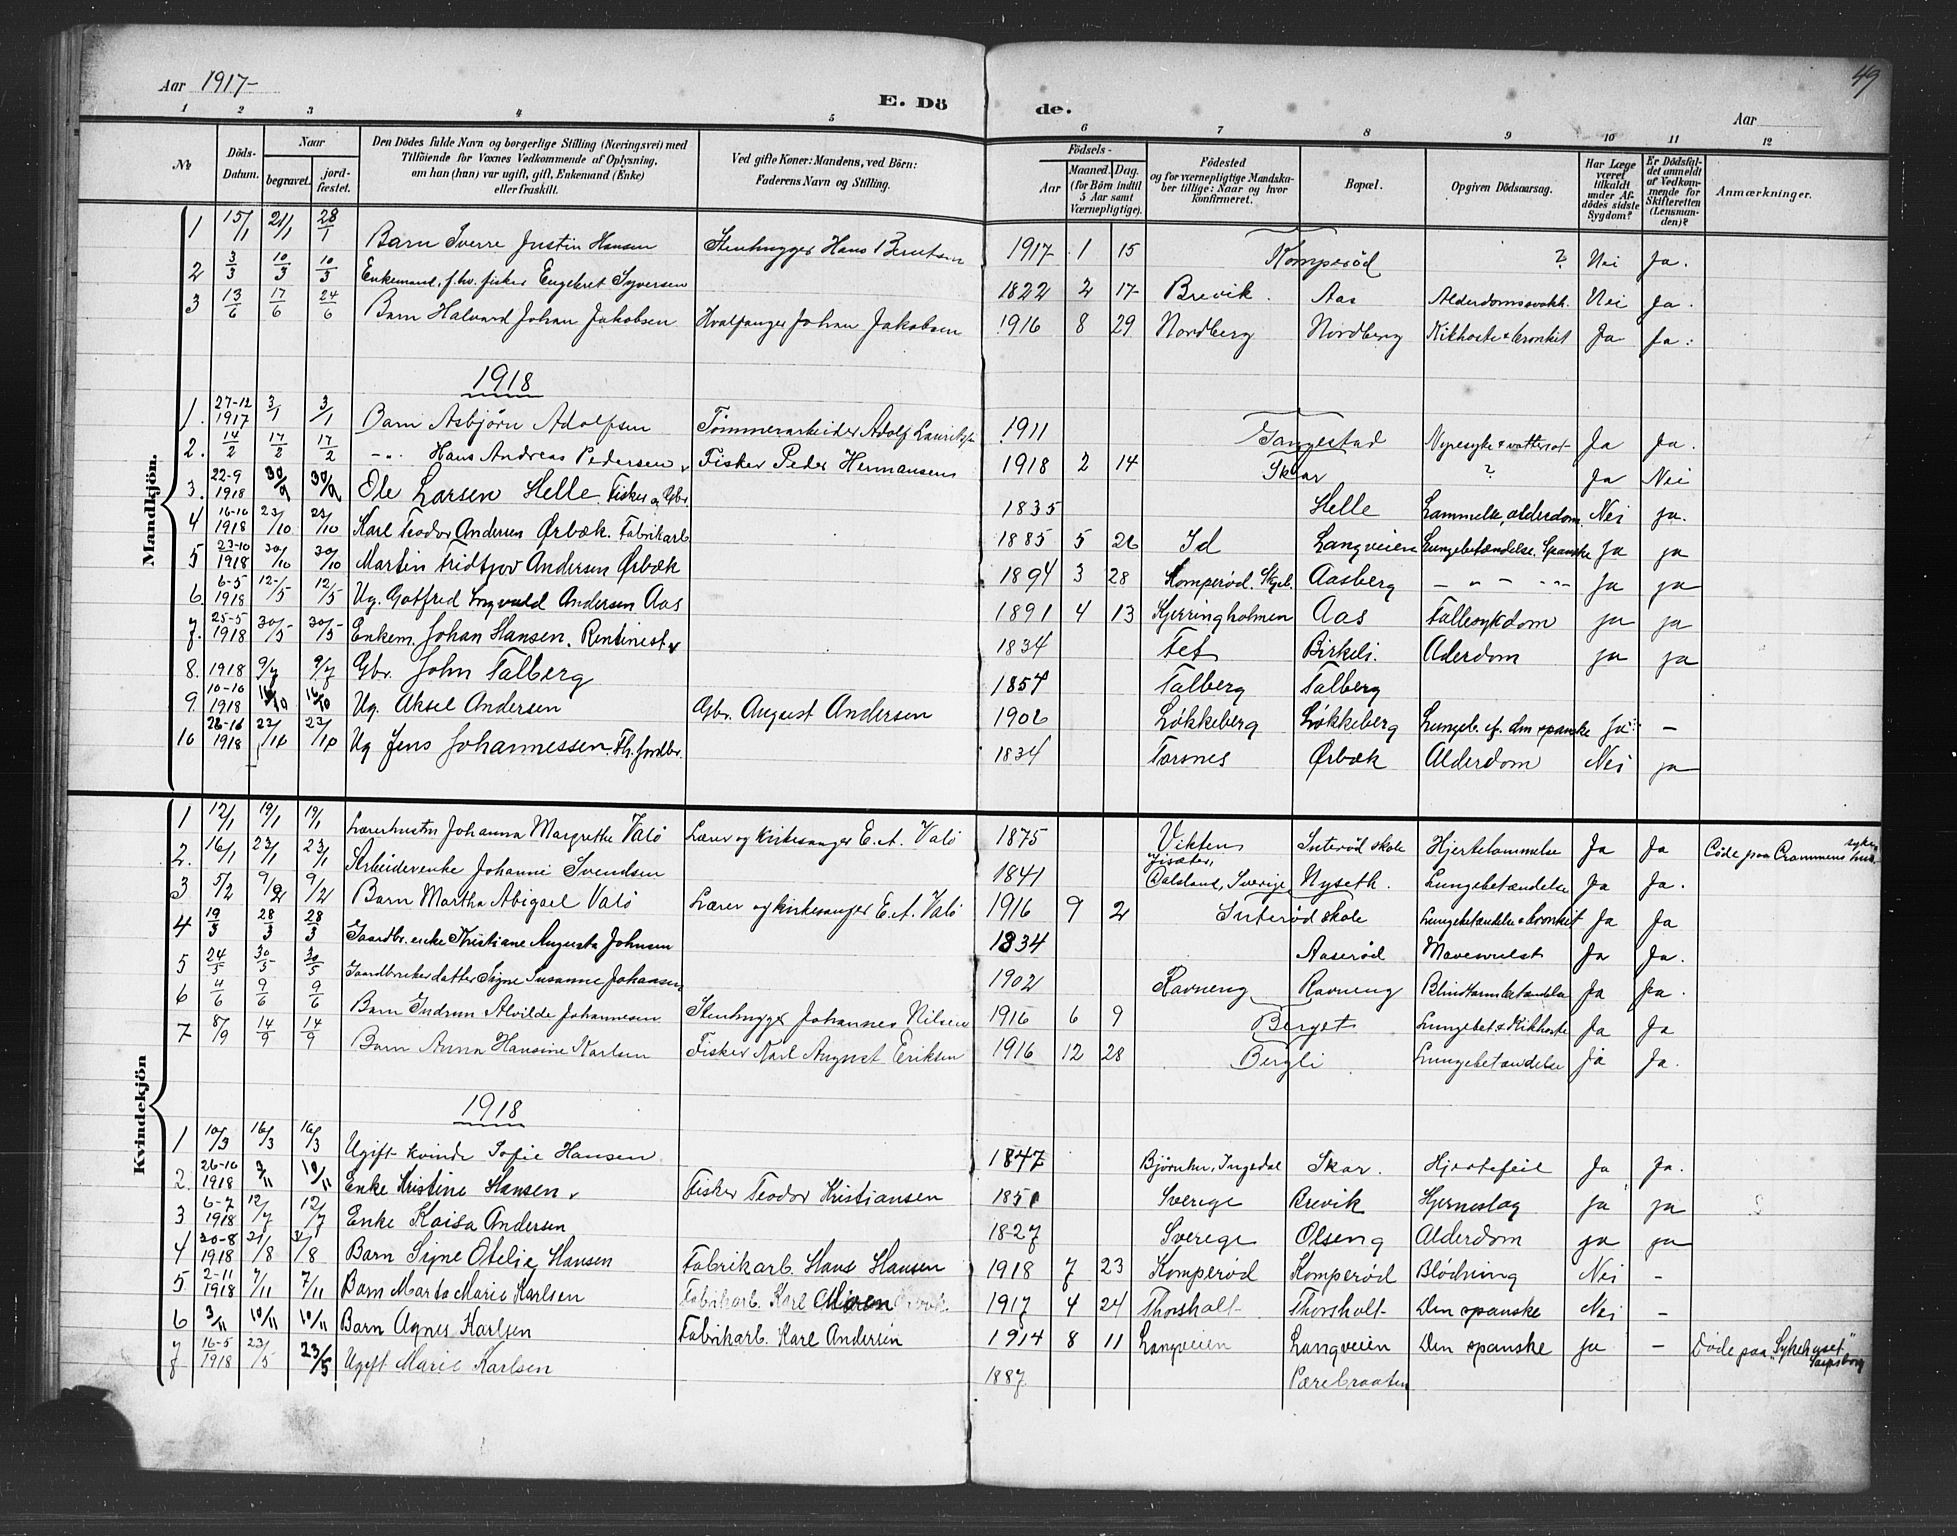 Aar 1917-
E. Dö de.
Aar
49
1 2 3 4 5 6 7 8 9 10 11 12
No
Döds-Datum.
Naar
begravet.
jord-fæstet.
Den Dödes fulde Navn og borgerlige Stilling (Næringsvei) med Tilföiende for Voxnes Vedkommende af Oplysning, om han (hun) var ugift, gift, Enkemand (Enke) eller fraskilt.
Ved gifte Koner: Mandens, ved Börn: Faderens Navn og Stilling.
Födsels-
Aar
Maaned. Dag.
(for Börn indtil 5 Aar samt Værnepligtige).
Födested og for værnepligtige Mandskaber tillige: Naar og hvor konfirmeret.
Bopæl.
Opgiven Dödsaarsag.
Har Læge været tilkaldt under Afdödes sidste Sygdom?
Er Dödsfaldet anmeldt af Vedkommende for Skifteretten (Lensmanden)?
Anmærkninger.
Mandkjön.
1 15/1 21/1 28/1 Barn Sverre Justin Hansen Stenhugger Hans Berntsen 1917 1 15 Komperød ? Nei Ja.
2 3/3 10/3 10/3 Enkemand, f.hv. fisker Engebret Syversen 1822 2 17 Brevik. Aas Alderdomssvakh. Nei Ja.
3 13/6 17/6 24/6 Barn Halvard Johan Jakobsen Hvalfanger Johan Jakobsen 1916 8 29 Nordberg Nordberg Kikhoste & bronkit Ja Ja.
1918
1. 27-12 1917 3/1 3/1 Barn Asbjørn Adolfsen Tømmerarbeider Adolf 1911 Tangestad Nyresyke & vattersot Ja Ja.
2. 14/2 17/2 17/2 -"- Hans Andreas Pedersen Fisker Peder Hermansen 1918 2 14 Skar ? Ja Nei
3. 22-9 1918 30/9 30/9 Ole Larsen Helle. Fisker og Gbr. 1835 Helle Lammelse, alderdom Nei ja.
4 16-10 1918 23/10 23/10 Karl Teodor Andersen Ørbæk. Fabrikarb. 1885 5 26 Id Langveien Lungebetændelse. Spanske Ja ja
5 23-10 1918 30/10 30/10 Martin Fridtjov Andersen Ørbæk 1894 3 28 Komperød. Skjeb. Aasberg - " - " - Ja ja
6. 6-5 1918 12/5 12/5 Ug. Gotfred Ingvald Andersen Aas 1891 4 13 Kjerringholmen Aas Fallesykdom ja ja
7. 25-5 1918 30/5 30/5 Enkem. Johan Hansen. Rentinest 1834 Tet Birkeli. Alderdom ja ja
8. 1918 9/7 9/7 Gbr. John Talberg 1854 Talberg Talberg
9 10-10 1918 16/10 16/10 Ug. Aksel Andersen Gbr. August Andersen 1902 Løkkeberg Løkkeberg Lungeb. ef. den spanske Ja -
10 26-16 1918 22/10 22/10 Ug Jens Johannessen 1834 Torsnes Ørbæk Alderdom Nei ja
Kvindekjön
1 12/1 19/1 19/1 Lærerhustru Johanna Margrethe Valø Lærer og kirkesanger E. A. Valø 1875 Vikten Interød skole Hjertelammelse Ja Ja
2. 16/1 23/1 23/1 Arbeiderenke Johanne Svendsen 1841 Dalsland, Sverige Nyseth. Lungebetændelse Ja Ja.
3 5/2 9/2 9/2 Barn Martha Abigael Valø Lærer og kirkesanger E. A. Valø 1916 9 2 Interød skole Lungebetændelse & bronkit Ja Ja
4 19/3 28/3 28/3 Gaardbr. enke Kristiane Augusta Johnsen 1834 Aaserød Mavesvulst Ja Ja.
5 24/5 30/5 30/5 Gaardbruker datter Signe Susanne Johansen 1902 Ravneng Ravneng Blindtarmbetændelse Ja Ja.
6 4/6 9/6 9/6 Barn Gudrun Alvilde Johannesen Stenhugger Johannes Nilsen 1916 6 9 Berget Lungebet & Kikhoste Ja Ja
7 8/9 14/9 14/9 Barn Anna Hansine Karlsen Fisker Karl August Eriksen 1916 12 28 Bergli Lungebetændelse Ja Ja.
1918
1 10/3 16/3 16/3 Ugift kvinde Sofie Hansen 1847 Bjørnhu, Ingedal Skar. Hjertefeil Ja Ja.
2. 26-10 1918 9/11 10/11 Enke Kristine Hansen Fisker Teodor Kristiansen 1851 Sverige Brevik Hjerneslag ja ja
3 6-7 1918 12/7 12/7 Enke Kaisa Andersen 1827 Sverige Olseng Alderdom ja ja
4 20-8 1918 21/8 31/8 Barn Signe Otelie Hansen Fabrikarb. Hans Hansen 1918 7 23 Komperød Komperød Blødning Nei -
5. 2-11 1918 7/11 7/11 Barn Marta Marie Karlsen Fabrikarb. Karl 1917 4 24 Thorsholt Thorsholt Den spanske Nei -
6 3/11 10/11 10/11 Barn Agnes Karlsen Fabrikarb. Karl Andersen 1914 8 11 Langveien Langveien Den spanske ja - Døde paa "Sykehuset" Sarpsborg
7 16-5 1918 23/5 23/5 Ugift Marie Karlsen 1887 Pærebraaten